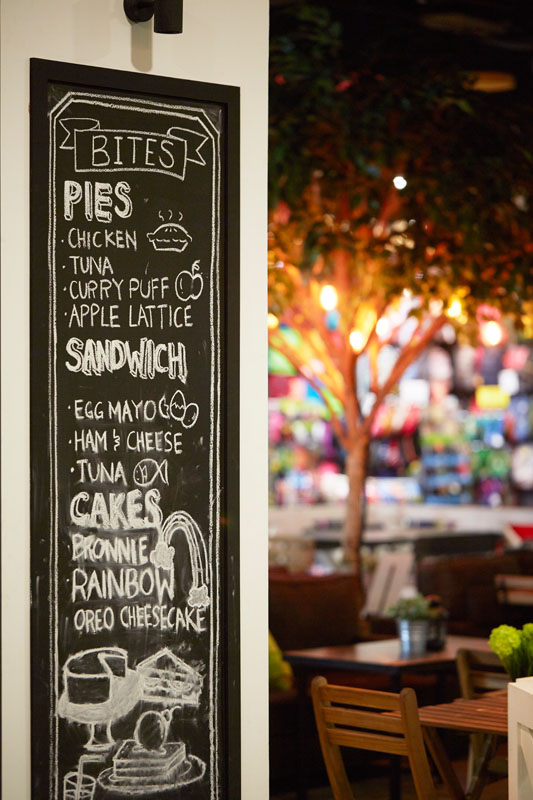 BITES
PIES
· CHICKEN
· TUNA
· CURRY PUFF
· APPLE LATTICE
SANDWICH
· EGG MAYO
· HAM & CHEESE
· TUNA
CAKES
· BRONNIE
· RAINBOW
OREO CHEESECAKE